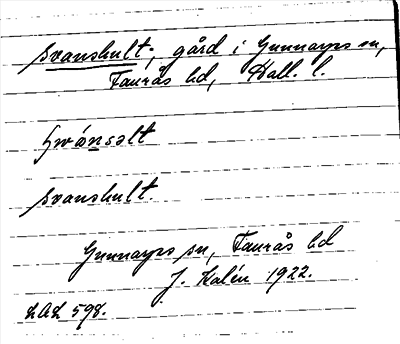 Svanshult, gård i Gunnarps sn,
Faurås hd, Hall. l.
Svanshult.
Gunnarps sn, Faurås hd
J. Kalén 1922.
LAL 598.